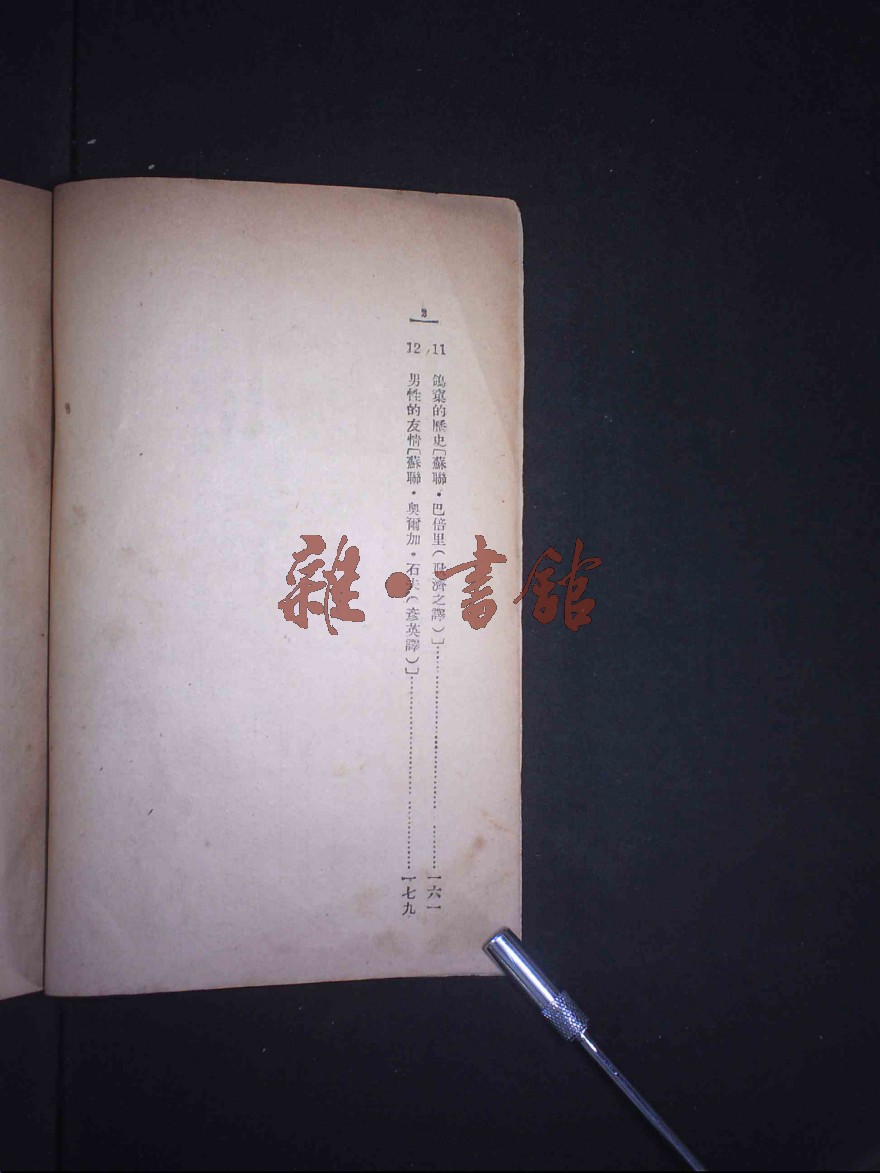 2
11 鴿窠的歷史[蘇聯·巴倍里(耿濟之譯)]……一六一
12 男性的友情[蘇聯·奧爾加·石夫(彥英譯)]……一七九
雜·書館